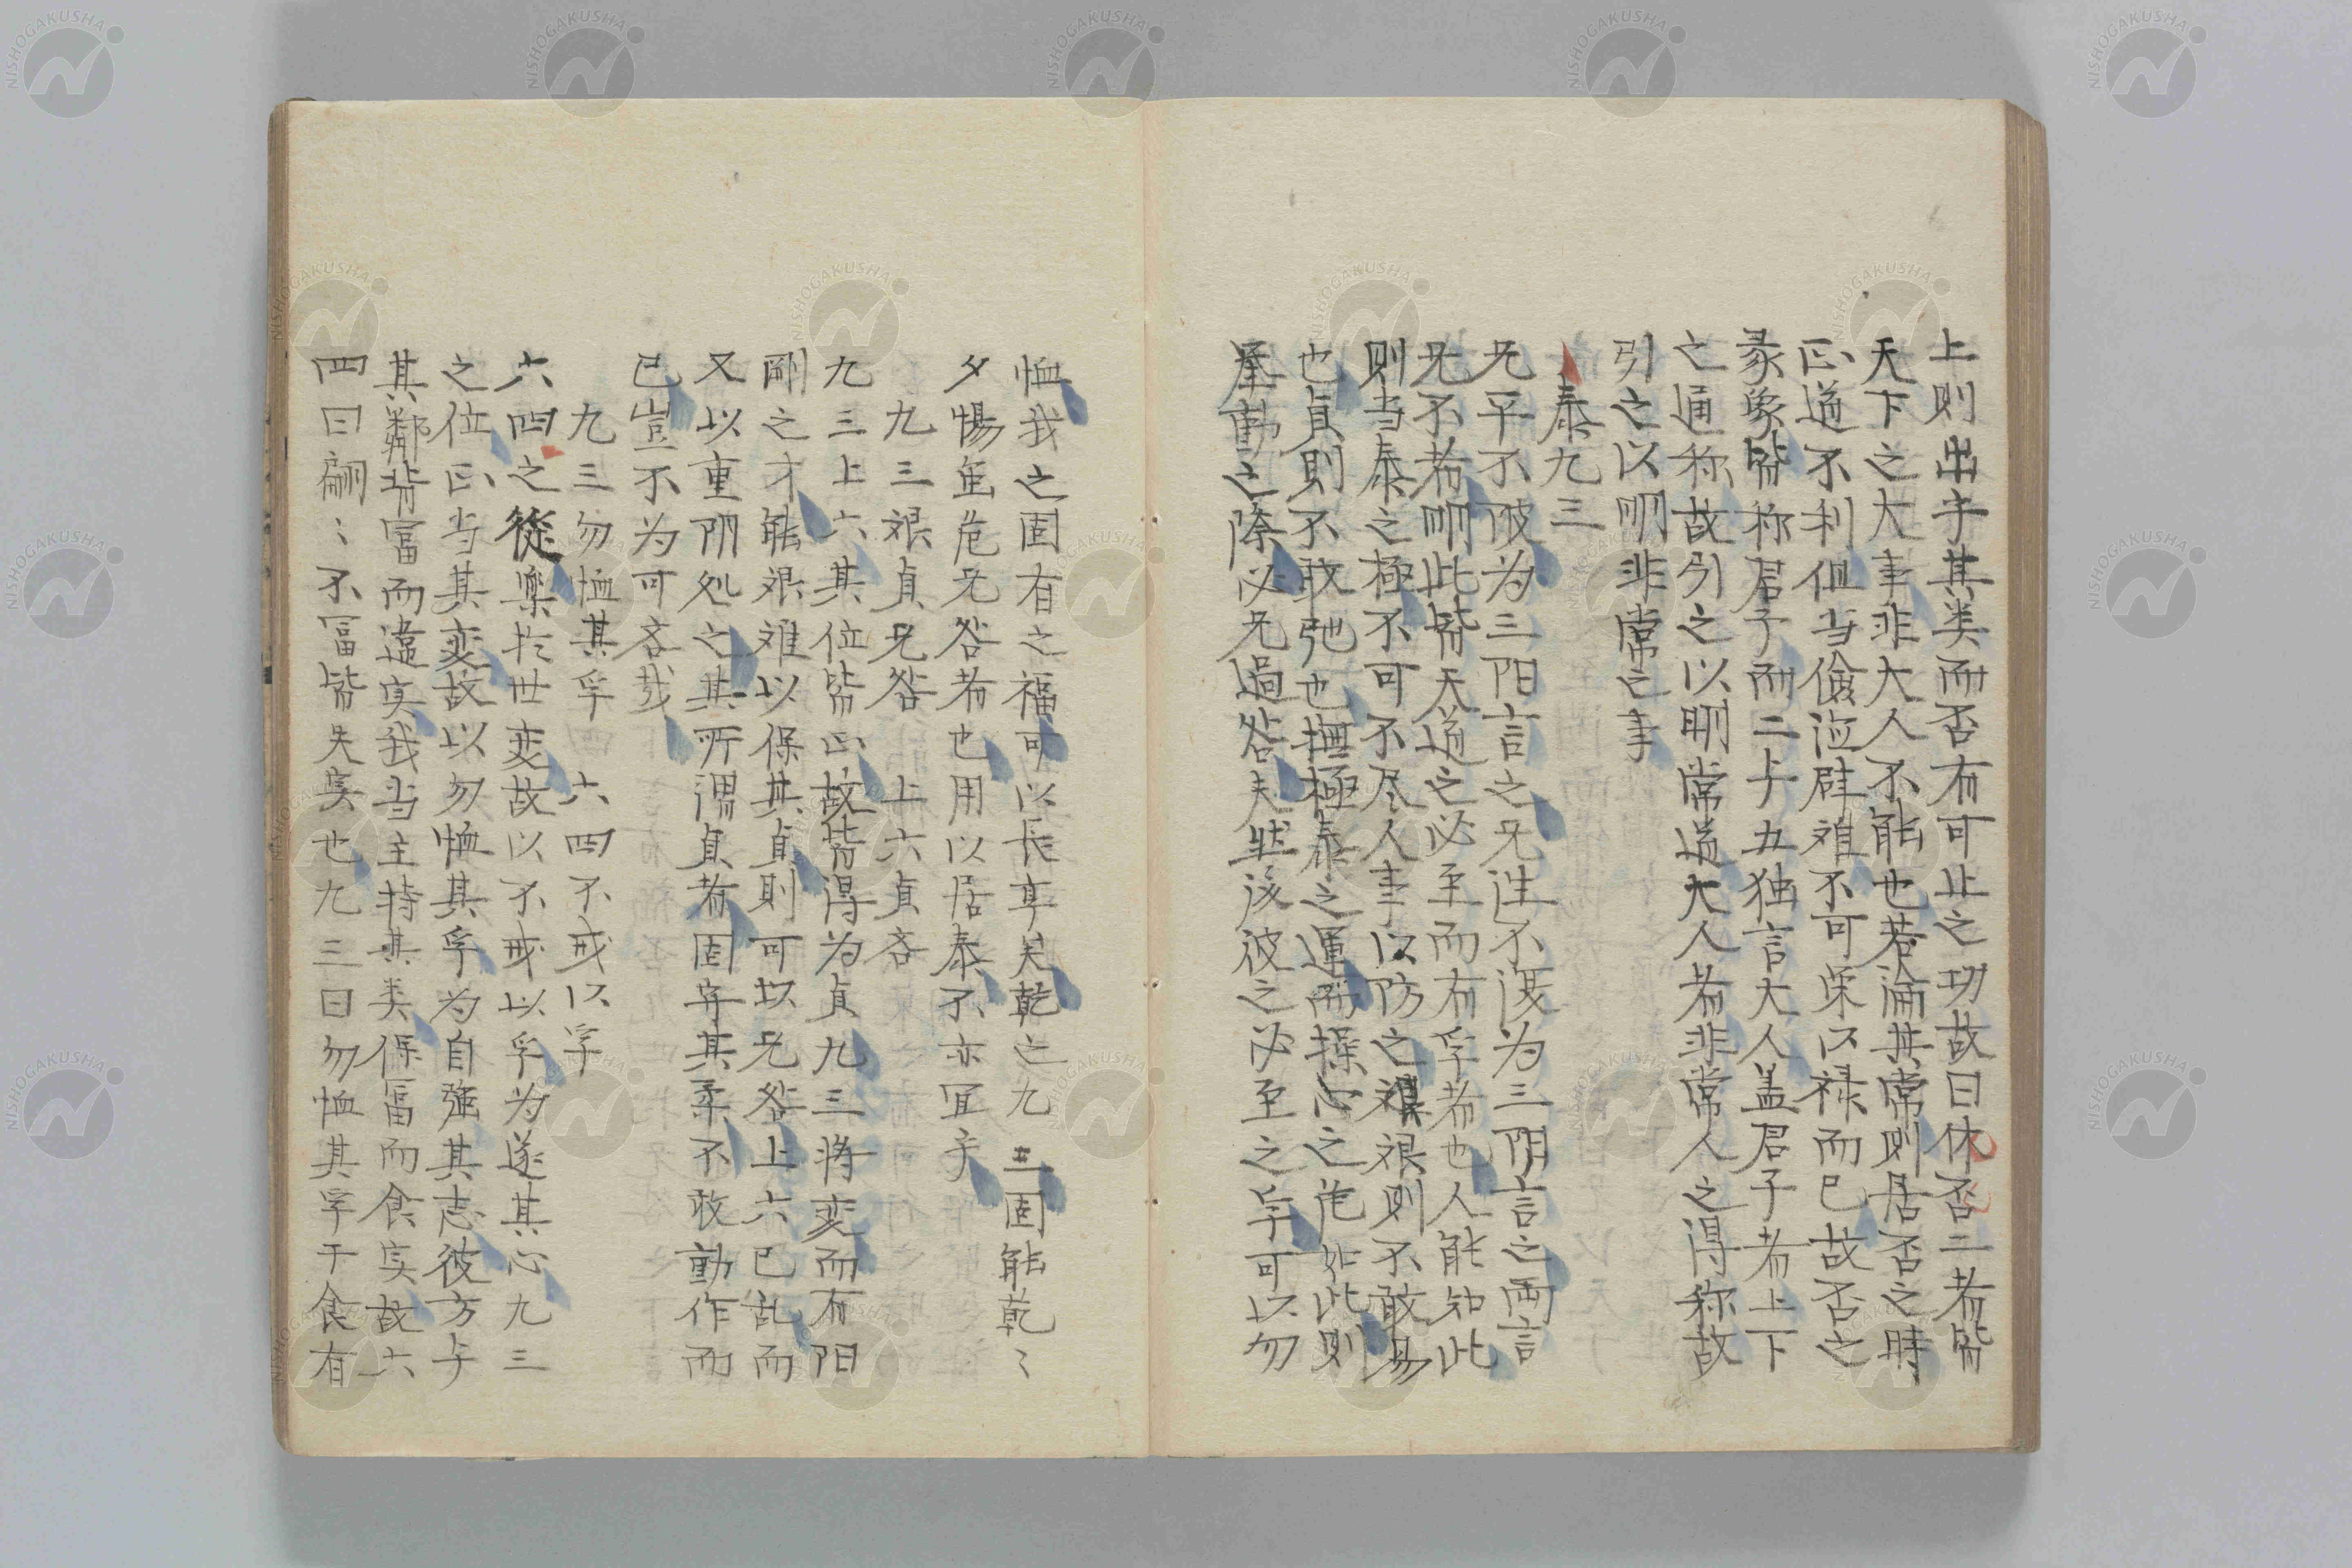 上則出乎其类而否有可止之功故曰休否二者皆
天下之大事非大人不能也若論其常則居否之時
正道不利但当儉德辟难不可荣以禄而已故否之
彖象皆称君子而二与五独言大人盖君子者上下
之通称故引之以明常道大人者非常人之得称故
引之以明非常之事
泰九三
无平不陂为三阳言之无往不復为三阴言之兩言
无不者明此皆天道之必至而有孚者也人能知此
则当泰之極不可不尽人事以防之艰则不敢易
也貞則不敢弛也撫極泰之運而操心之危如此则
举動之際必无過咎夫然後彼之必至之孚可以勿
恤我之固有之福可以長享矣乾之九三固能乾〻
夕惕虽危无咎者也用以居泰不亦宜乎
九三艰貞无咎　上六貞吝
九三上六其位皆正故皆得为貞九三将变而有阳
剛之才能艰难以保其貞則可以无咎上六已乱而
又以重阴処之其所謂貞者固守其柔不敢動作而
已豈不为可吝哉
九三勿恤其孚　六四不戒以孚
六四之従樂於世变故以不戒以孚为遂其心九三
之位正当其变故以勿恤其孚为自强其志彼方与
其鄰背富而違实我当主持其类保富而食实故六
四曰翩〻不富皆失实也九三曰勿恤其孚于食有